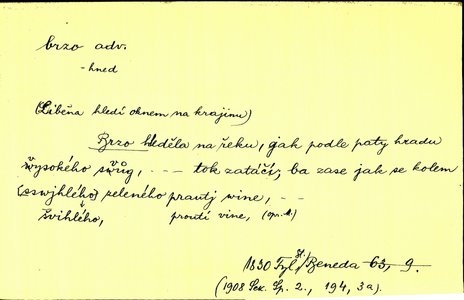 brzo adv.
-hned
(Liběna hledí oknem na krajinu)
Brzo hleděla na řeku, gak podle paty hradu
wysokého swůg, - - - tok zatáčí, ba zase jak se kolem
(osswjhlého) zeleného prautj wine, - -
švihlého, proutí vine, (op. A.)
1830 Tyl, St. Beneda 63, 9.
(1908 Sex. Sp. 2, 194, 3a).